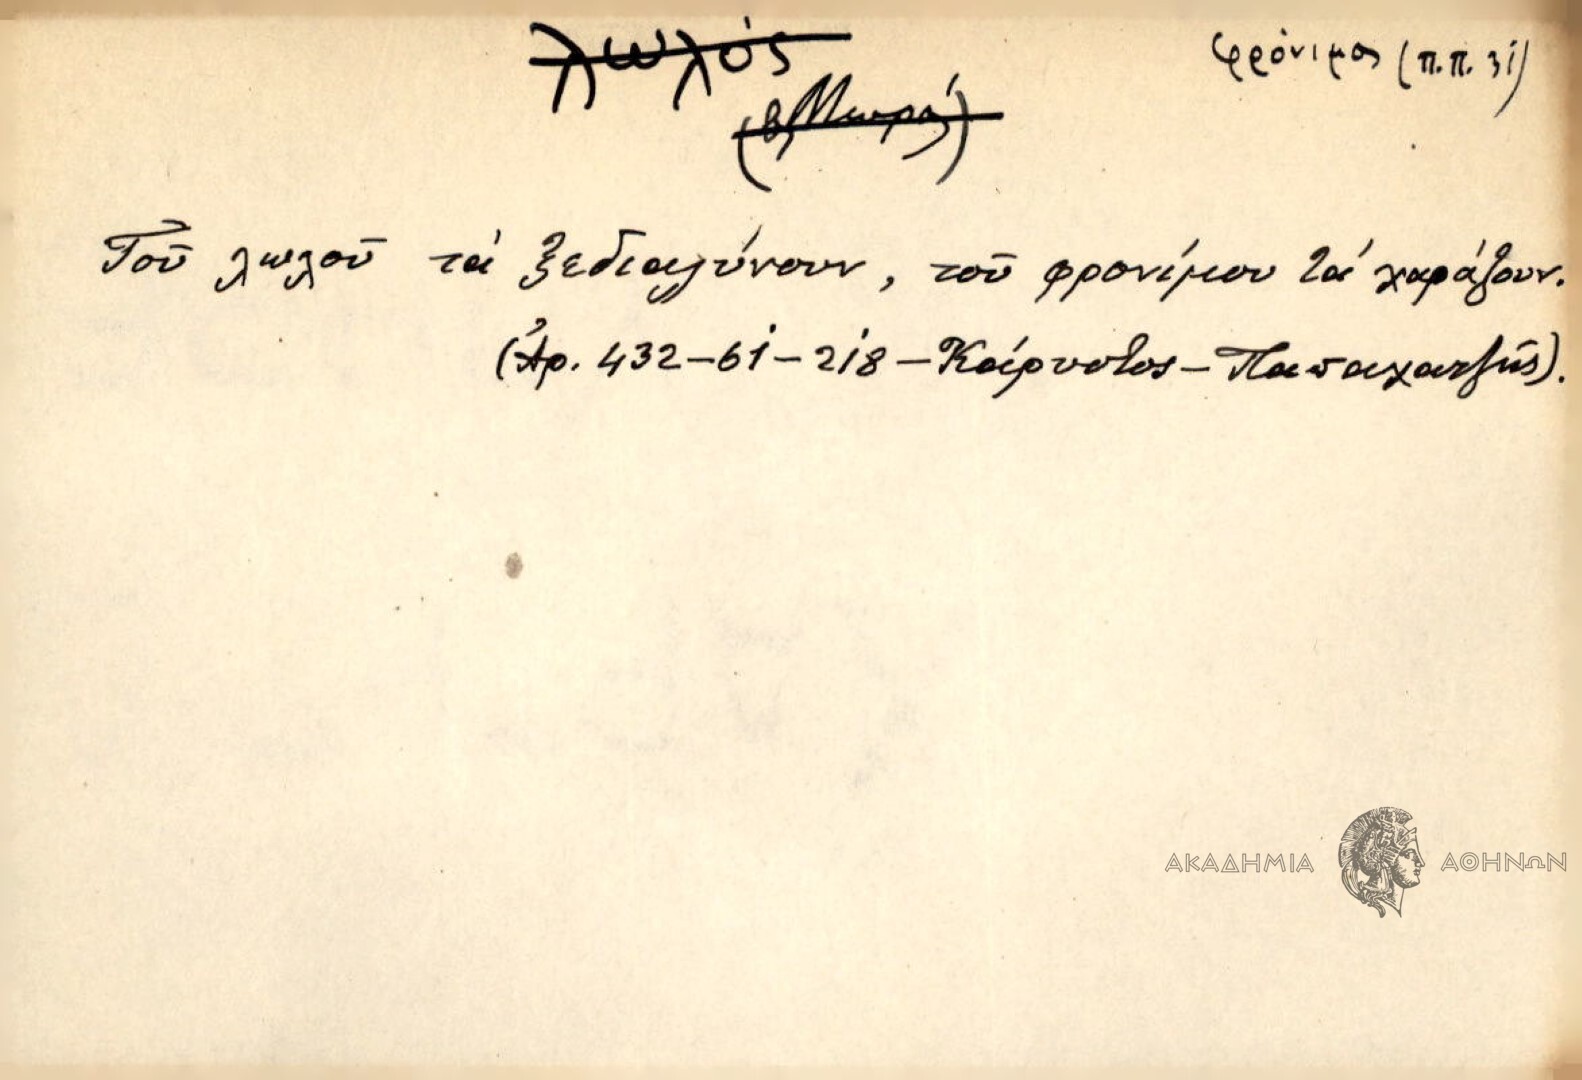 λωλός
φρόνιμος (π.π. 31)
Τοῦ λωλοῦ τά ξεδιαλύνουν, τοῦ φρονίμου τά χαράζουν.
(Ἀρ. 432-61-218-Κάρυστος-Παπαχατζῆς).
ΑΚΑΔΗΜΙΑ ΑΘΗΝΩΝ